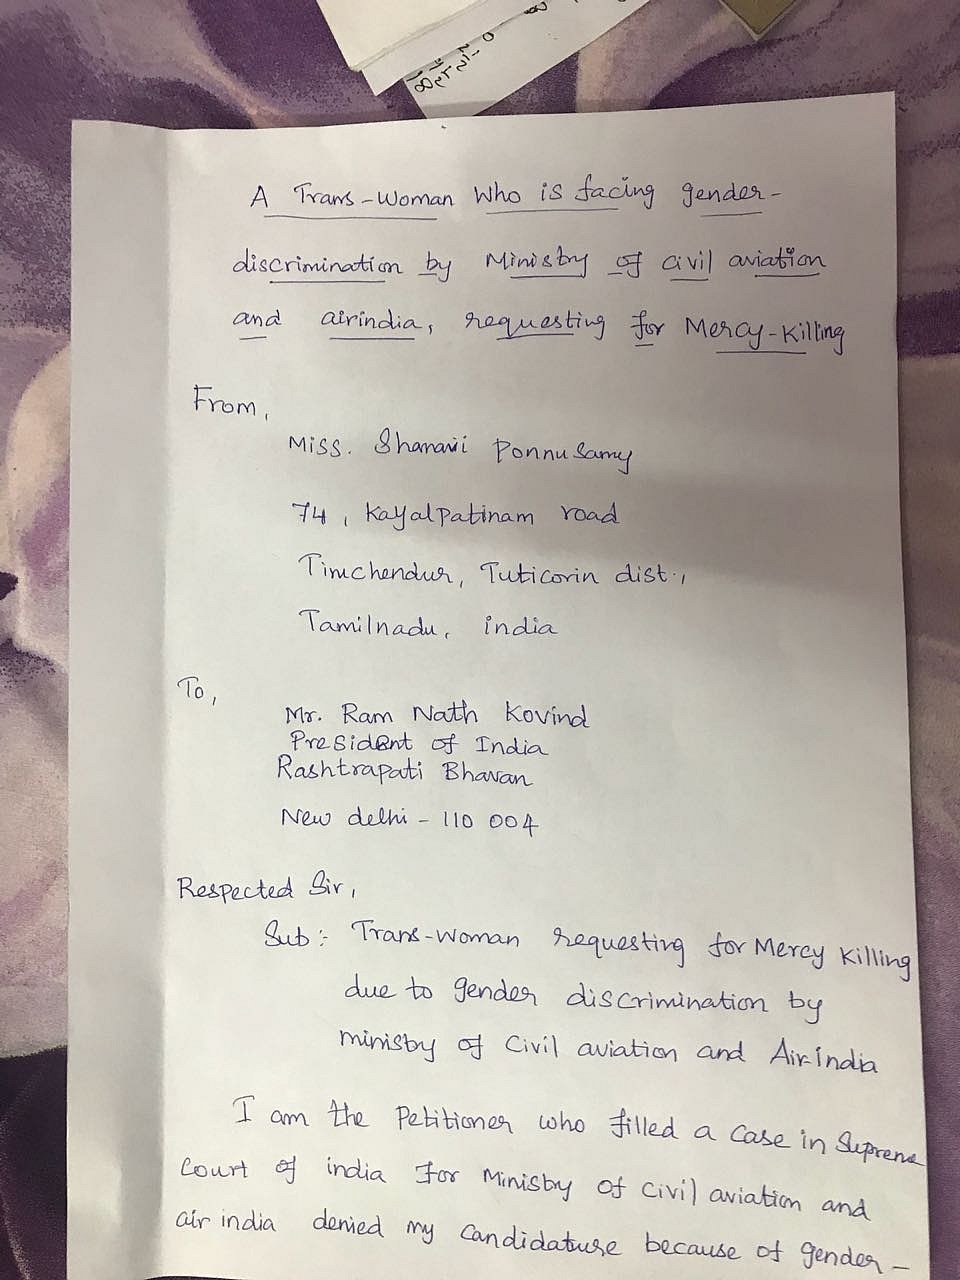 A Trans-Woman Who is facing gender-
discrimination by Ministry of civil aviation
and airindia, requesting for Mercy-Killing
From,
Miss. Shanavi Ponnusamy
74, Kayalpatinam road
Tiruchendur, Tuticorin dist.,
Tamilnadu, india
To,
Mr. Ram Nath Kovind
President of India
Rashtrapati Bhavan
New delhi - 110 004
Respected Sir,
Sub :- Trans-Woman requesting for Mercy Killing
due to gender discrimination by
ministry of Civil aviation and Air-India
I am the Petitioner who filled a case in Supreme
Court of india for Ministry of Civil aviation and
air india denied my candidature because of gender-